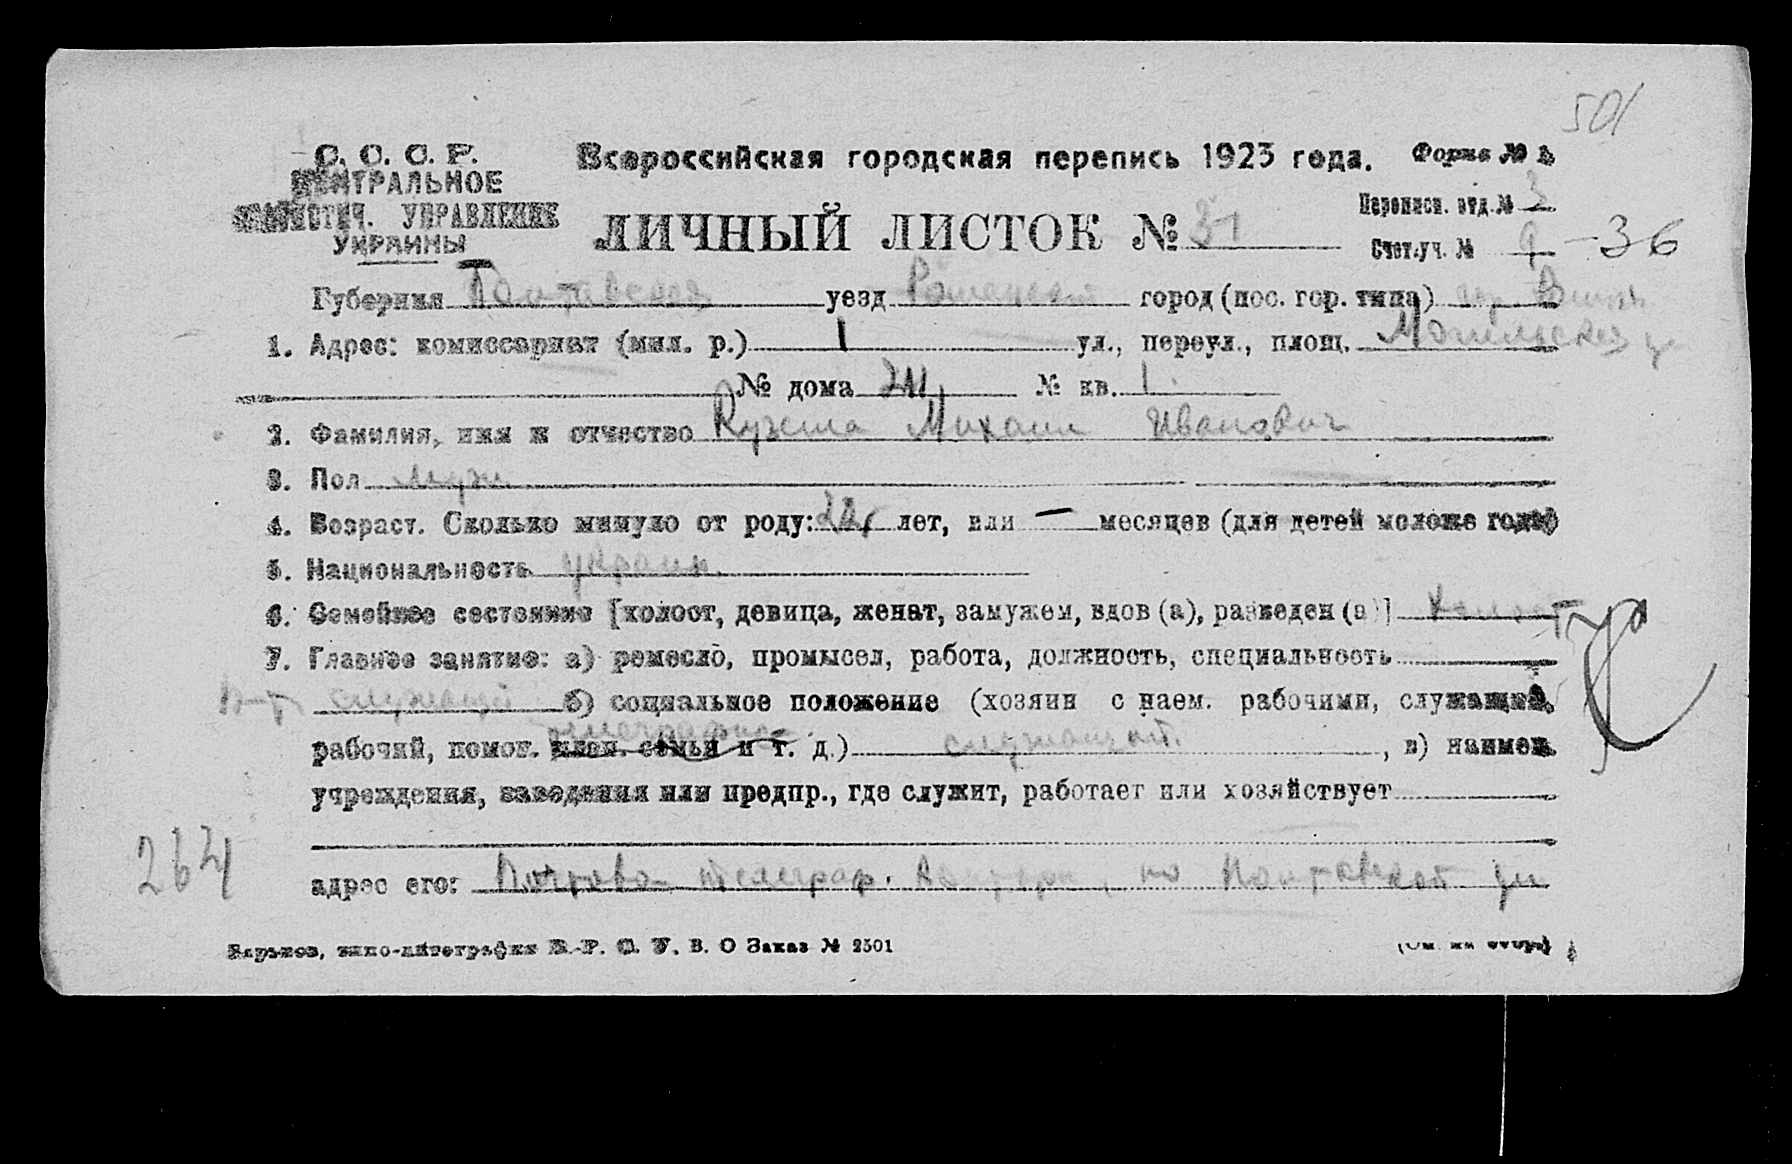 501
С. С. С. Р.
ЦЕНТРАЛЬНОЕ
СТАТИСТИЧ. УПРАВЛЕНИЕ
УКРАИНЫ
Всероссийская городская перепись 1923 года.
Форма № 1.
ЛИЧНЫЙ ЛИСТОК № 31
Переписн. отд. № 3
Счет. уч. № 9 - 36
Губерния Полтавская уезд Роменский город (пос. гор. типа)
1. Адрес: комиссариат (мил. р.) 1 ул., переул., площ.
№ дома 24 № кв. 1.
2. Фамилия, имя и отчество Кужема Михаил Иванович
3. Пол муж
4. Возраст. Сколько минуло от роду: 22 лет, или — месяцев (для детей моложе года)
5. Национальность украин.
6. Семейное состояние [холост, девица, женат, замужем, вдов (а), разведен (а)] холост
7. Главное занятие: а) ремесло, промысел, работа, должность, специальность
служащий б) социальное положение (хозяин с наем. рабочими, служащий,
рабочий, помог. член. семьи и т. д.) служащий. , в) наимен.
учреждения, заведения или предпр., где служит, работает или хозяйствует
264
адрес его: Почтово-телеграф. контора, по Полтавской ул
Харьков, типо-литография В. О Заказ № 2501
(См. на обор.)